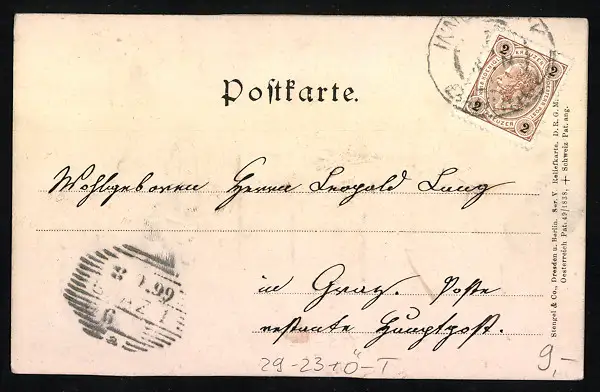 Postkarte.
2 2
2 2
KREUZER
Wohlgeboren Herrn Leopold Lang
in Graz. Poste
restante Hauptpost.
99
6
29-23+Ö-T
9,-
Stengel & Co., Dresden u. Berlin. Ser. V Reliefkarte. D. R. G. M.
Oesterreich Pat. 49/1838, + Schweiz Pat. ang.